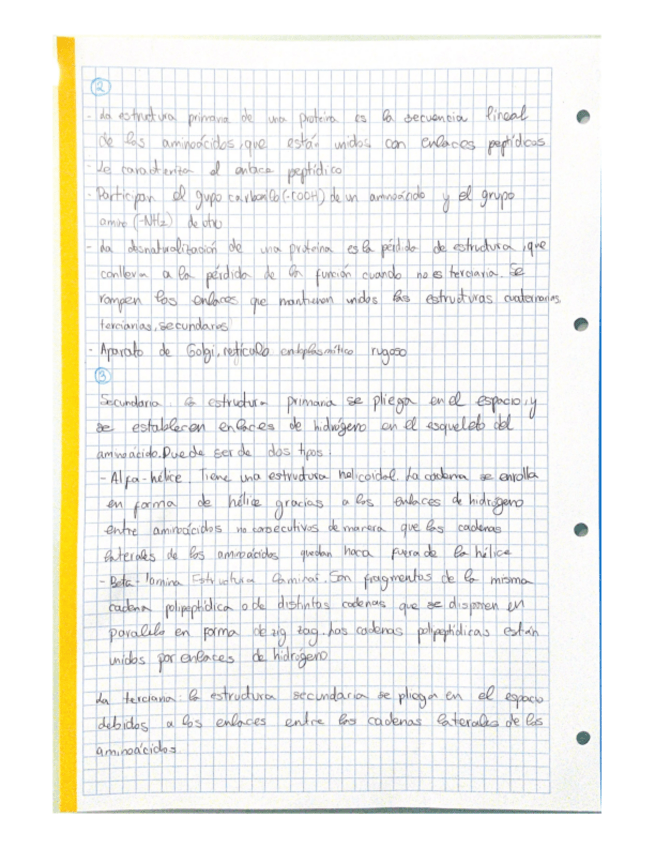 2
- La estructura primaria de una proteína es la secuencia lineal
de los aminoácidos, que están unidos con enlaces peptídicos
- Le caracteriza el enlace peptídico
- Participan el gupo carbonilo (-COOH) de un aminoácido y el grupo
amino (-NH2) de otro
- La desnaturalización de una proteína es la pérdida de estructura, que
conlleva a la pérdida de la función cuando no es terciaria. Se
rompen los enlaces que mantienen unidos las estructuras cuaternarias,
terciarias, secundarias
- Aparato de Golgi, retículo endoplasmático rugoso
3
Secundaria. la estructura primaria se pliega en el espacio, y
se establecen enlaces de hidrógeno en el esqueleto del
aminoácido. Puede ser de dos tipos.
- Alfa-hélice. Tiene una estructura helicoidal. La cadena se enrolla
en forma de hélice gracias a los enlaces de hidrógeno
entre aminoácidos no consecutivos de manera que las cadenas
laterales de los aminoácidos quedan hacia fuera de la hélice
- Beta-lámina Estructura laminar. Son fragmentos de la misma
cadena polipeptídica o de distintas cadenas que se disponen en
paralelo en forma de zig zag. Las cadenas polipeptídicas están
unidos por enlaces de hidrógeno
La terciaria: la estructura secundaria se pliega en el espacio
debidos a los enlaces entre las cadenas laterales de los
aminoácidos